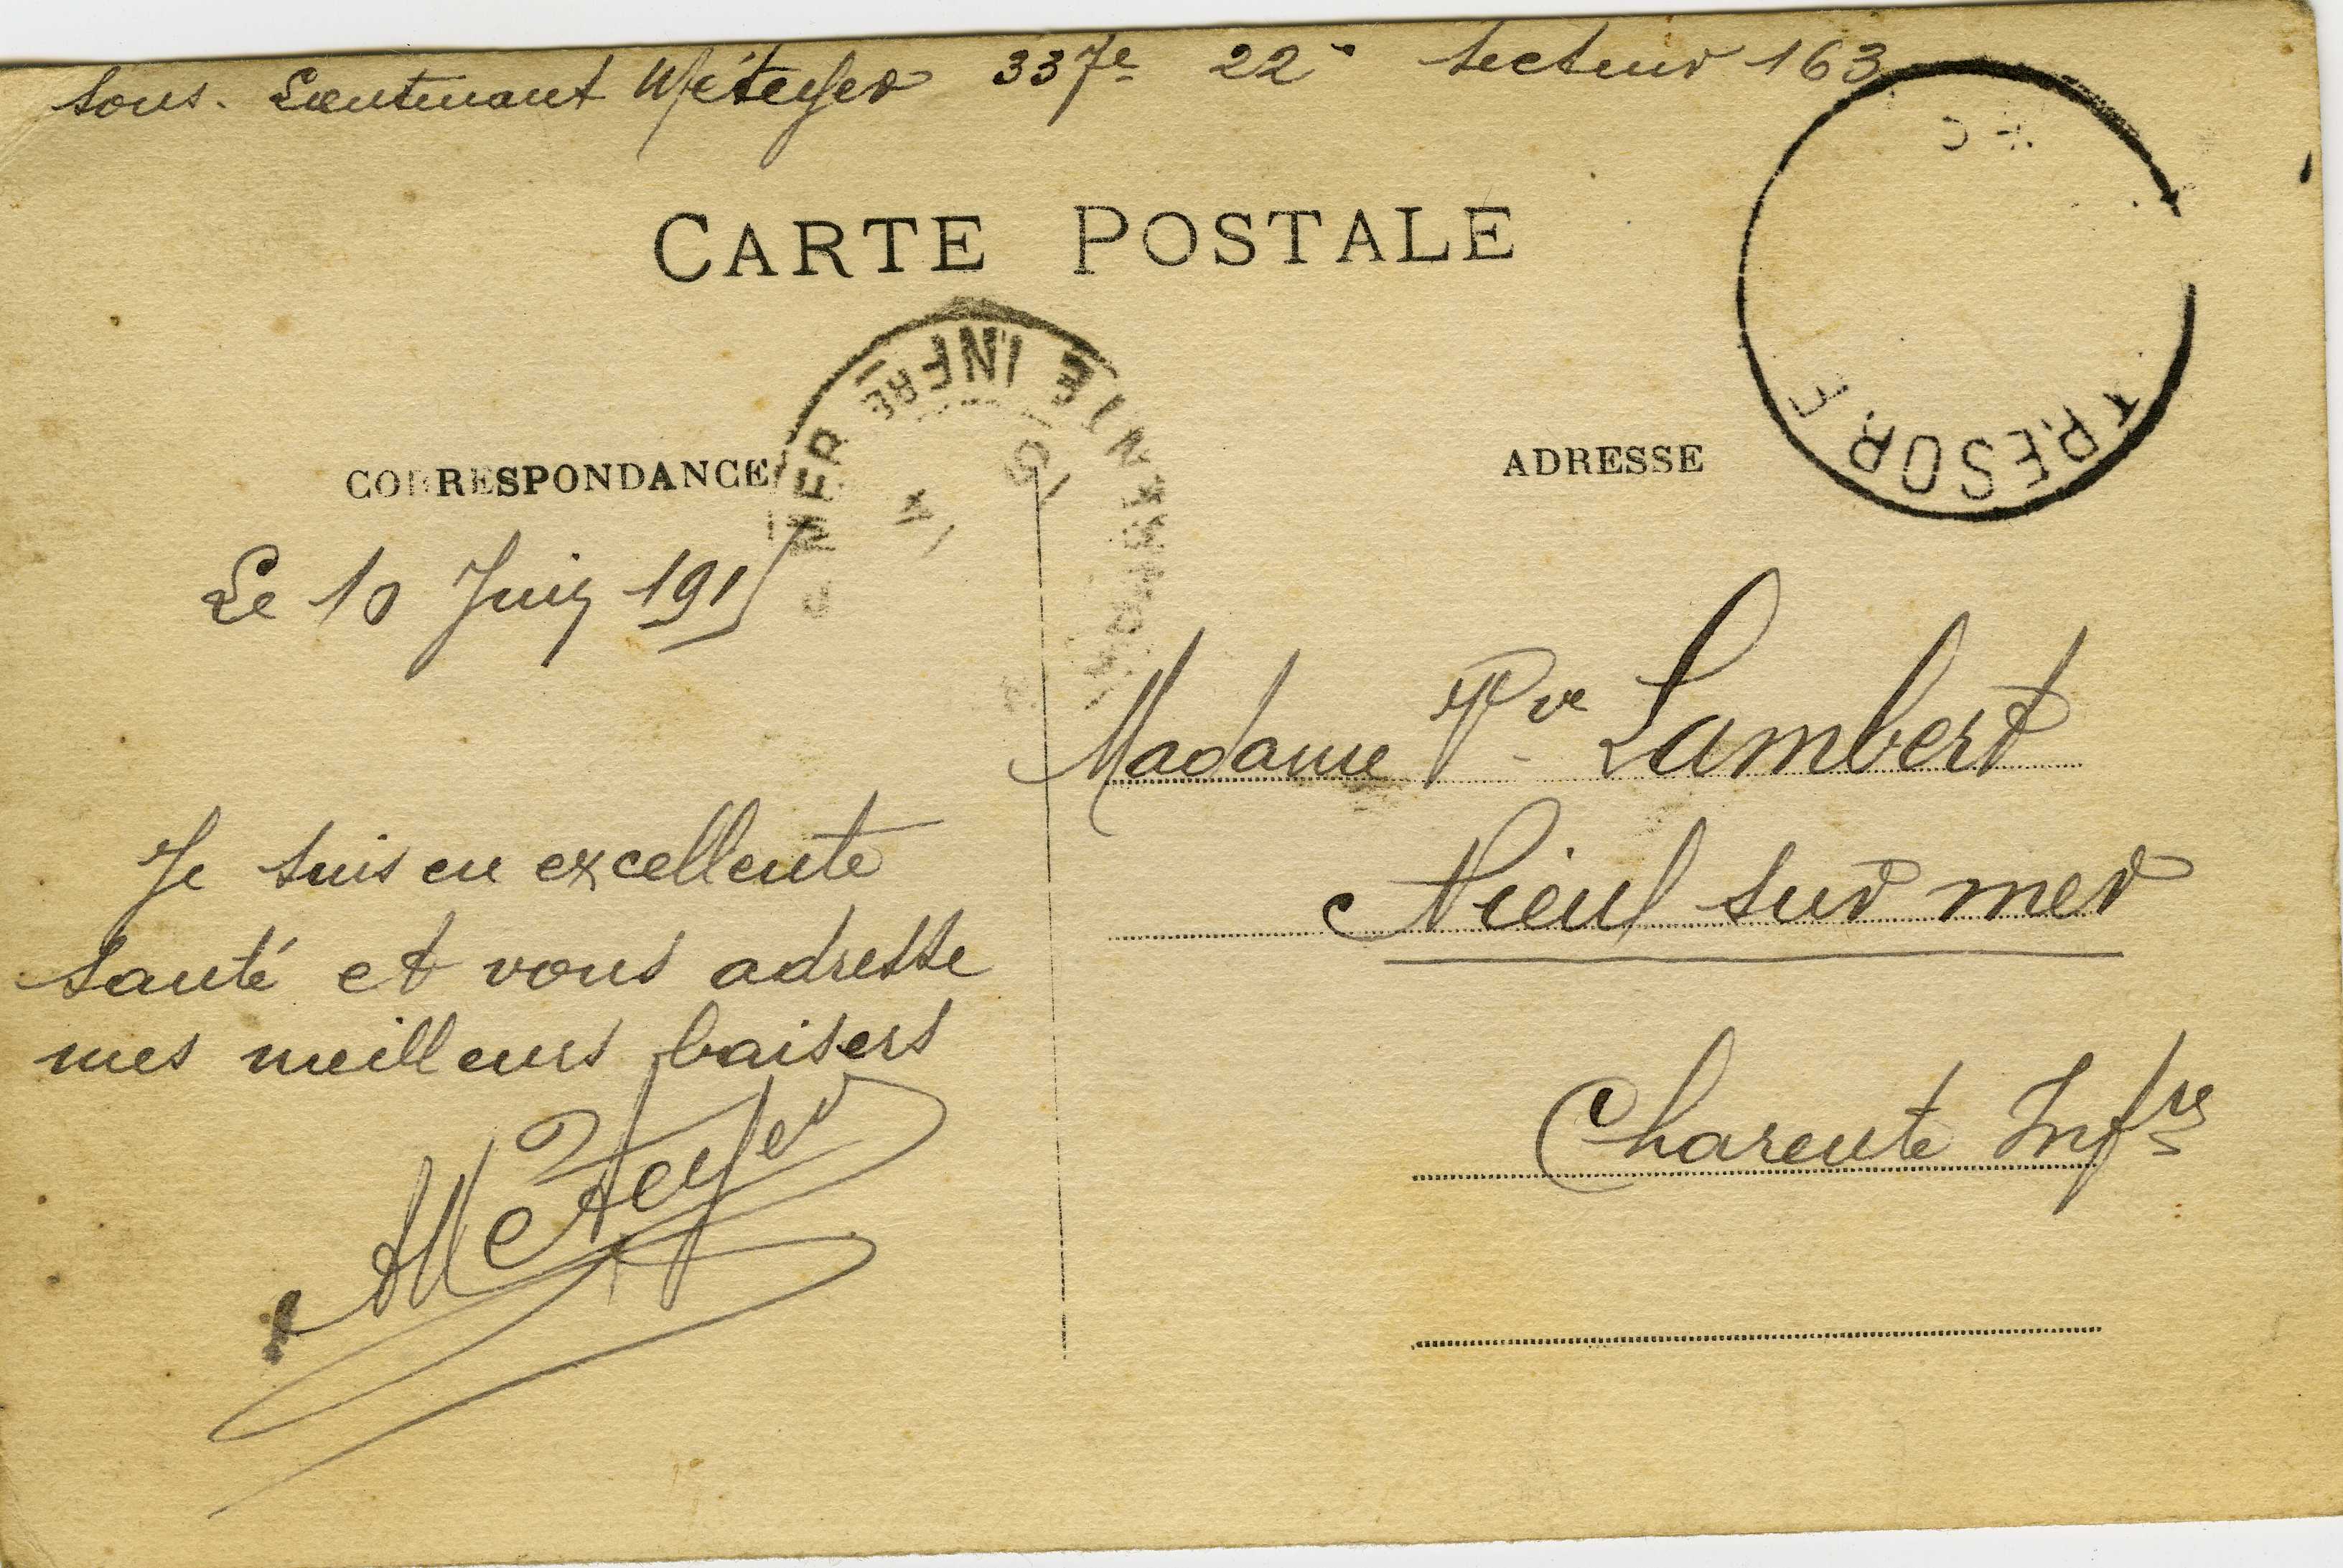 Sous. Lieutenant Méteyer 337e 22e secteur 163
CARTE POSTALE
CORRESPONDANCE
ADRESSE
MER INFRE
TRESOR
Le 10 Juin 1915
Madame Vve Lambert
Nieul sur mer
Charente Infre
Je suis en excellente
santé et vous adresse
mes meilleurs baisers
Méteyer